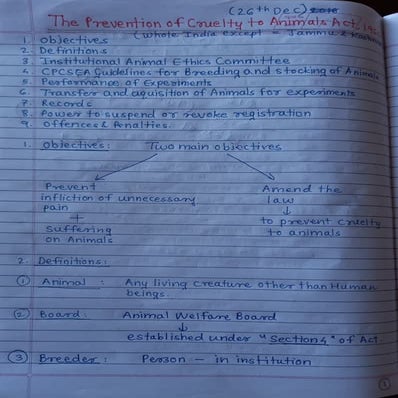 (26th Dec)
The Prevention of Cruelty to Animals Act,
(whole India except = Jammu & Kashmir
1. Objectives
2. Definitions
3. Institutional Animal Ethics Committee
4. CPCSEA Guidelines for Breeding and stocking of Animals
5. Performance of Experiments
6. Transfer and aquisition of Animals for experiments
7. Records
8. Power to suspend or revoke registration
9. Offences & Penalties.
1. Objectives: Two main objectives
Prevent Amend the
infliction of unnecessary law
pain ↓
+ to prevent cruelty
suffering to animals
on Animals
2. Definitions:
① Animal : Any living creature other than Human
beings.
② Board: Animal Welfare Board
↓
established under "Section 4" of Act.
③ Breeder: Person - in institution